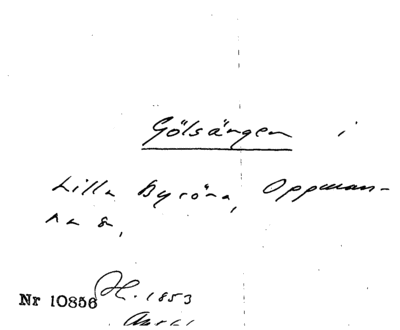 Gölsängen i
Lilla Byröna, Oppman-
na s,
Nr 10856 H. 1853